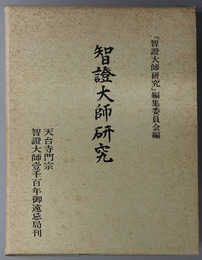 『智證大師研究』編集委員会編
智證大師研究
天台寺門宗
智證大師壹千百年御遠忌局刊